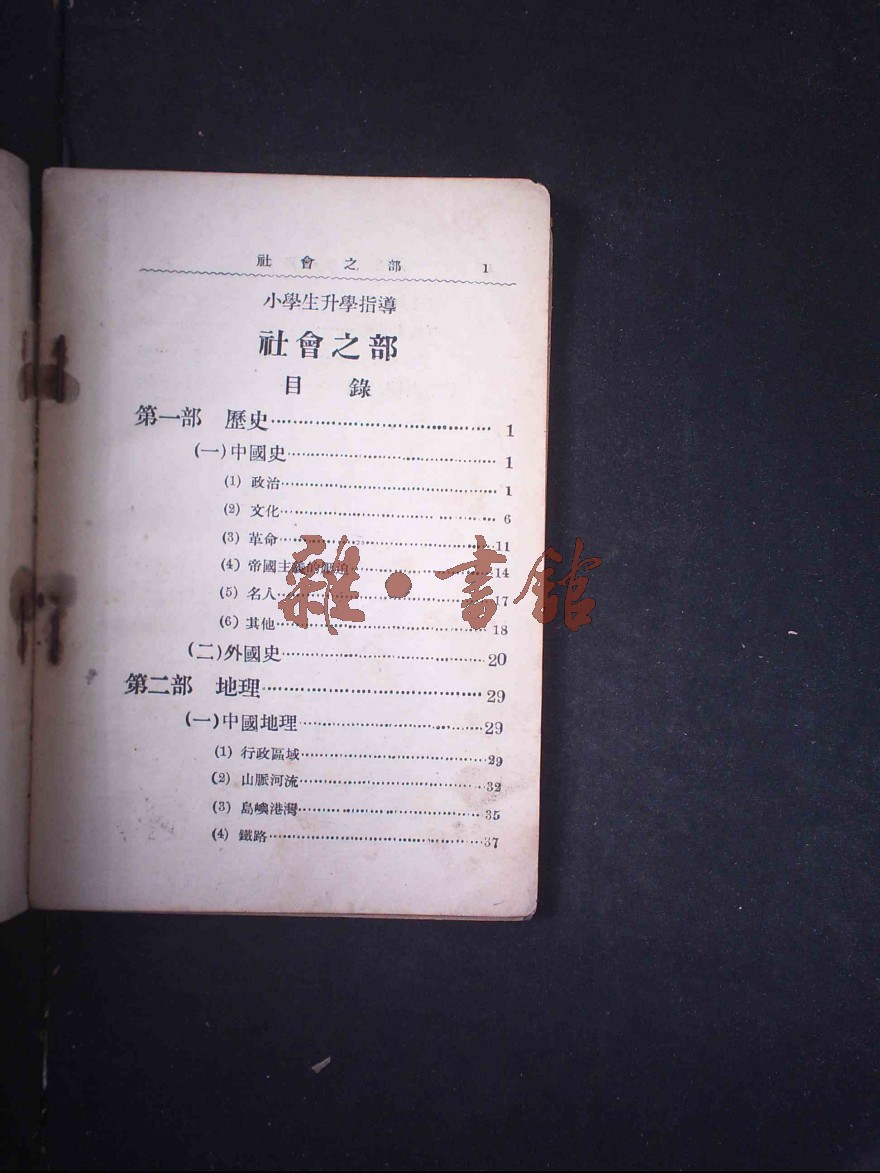 社會之部 1
小學生升學指導
社會之部
目錄
第一部 歷史 1
(一)中國史 1
(1) 政治 1
(2) 文化 6
(3) 革命 11
(4) 帝國主義的壓迫 14
(5) 名人 17
(6) 其他 18
(二)外國史 20
第二部 地理 29
(一)中國地理 29
(1) 行政區域 29
(2) 山脈河流 32
(3) 島嶼港灣 35
(4) 鐵路 37
雜·書館